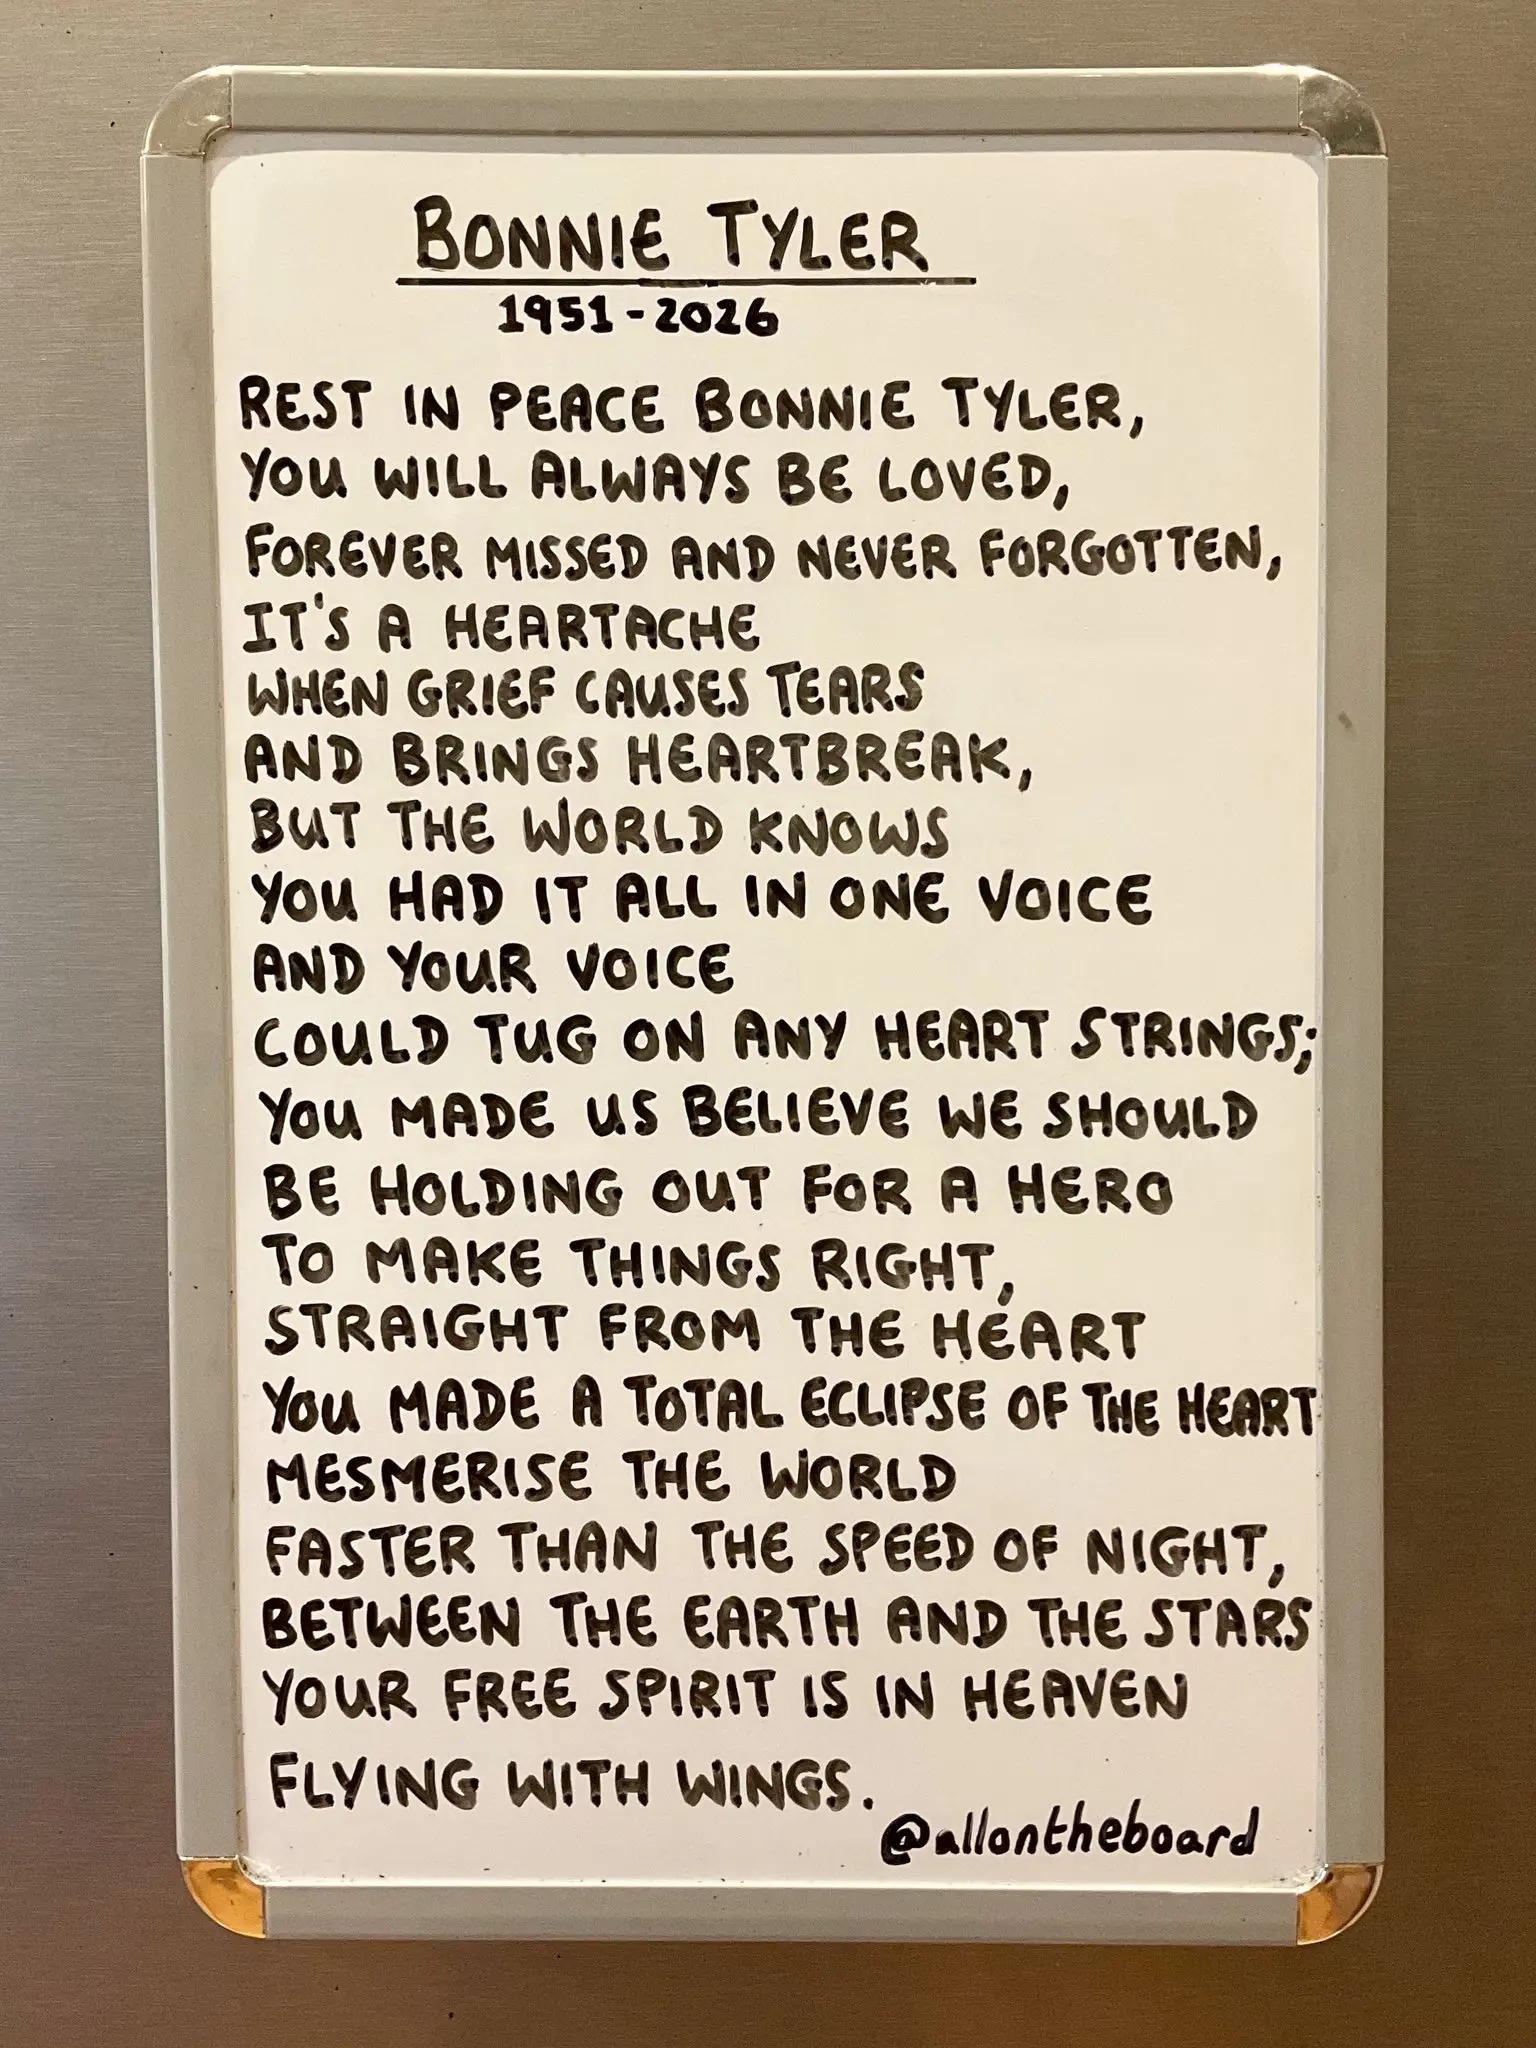 BONNIE TYLER
1951-2026
REST IN PEACE BONNIE TYLER,
YOU WILL ALWAYS BE LOVED,
FOREVER MISSED AND NEVER FORGOTTEN,
IT'S A HEARTACHE
WHEN GRIEF CAUSES TEARS
AND BRINGS HEARTBREAK,
BUT THE WORLD KNOWS
YOU HAD IT ALL IN ONE VOICE
AND YOUR VOICE
COULD TUG ON ANY HEART STRINGS;
YOU MADE US BELIEVE WE SHOULD
BE HOLDING OUT FOR A HERO
TO MAKE THINGS RIGHT,
STRAIGHT FROM THE HEART
YOU MADE A TOTAL ECLIPSE OF THE HEART
MESMERISE THE WORLD
FASTER THAN THE SPEED OF NIGHT,
BETWEEN THE EARTH AND THE STARS
YOUR FREE SPIRIT IS IN HEAVEN
FLYING WITH WINGS.
@allontheboard